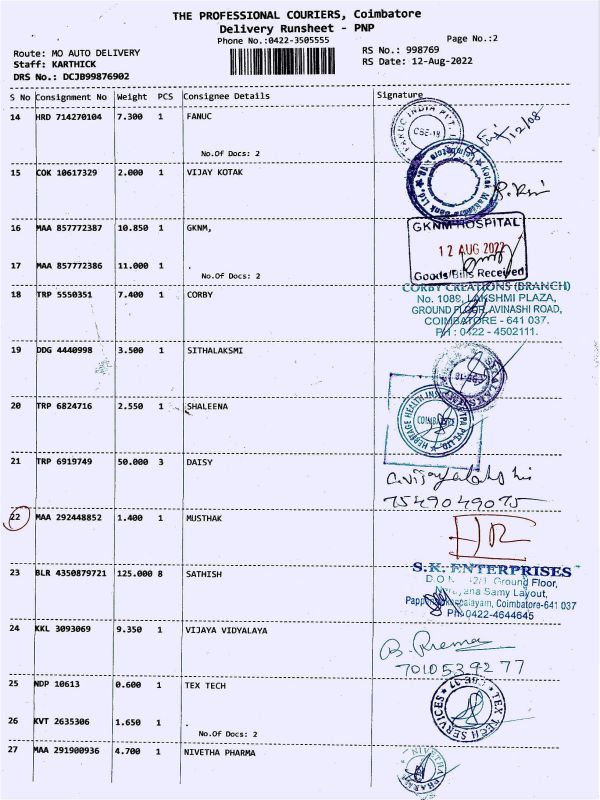 THE PROFESSIONAL COURIERS, Coimbatore
Delivery Runsheet - PNP
Phone No.:0422-3505555
Page No.:2
Route: MO AUTO DELIVERY
RS No.: 998769
Staff: KARTHICK
RS Date: 12-Aug-2022
DRS No.: DCJB99876902
S No Consignment No Weight PCS Consignee Details Signature
14 HRD 714270104 7.300 1 FANUC
FANUC INDIA PVT. L
CBE-18
12/08
No.Of Docs: 2
15 COK 10617329 2.000 1 VIJAY KOTAK
Kotak Mahindra Bank Ltd.
16 MAA 857772387 10.850 1 GKNM,
GKNM HOSPITAL
12 AUG 2022
Goods/Bills Received
17 MAA 857772386 11.000 1 .
No.Of Docs: 2
18 TRP 5550351 7.400 1 CORBY
CORBY CREATIONS (BRANCH)
No. 1089, LAKSHMI PLAZA,
GROUND FLOOR, AVINASHI ROAD,
COIMBATORE - 641 037.
PH : 0422 - 4502111.
19 DDG 4440998 3.500 1 SITHALAKSMI
20 TRP 6824716 2.550 1 SHALEENA
HERITAGE HEALTH INS TPA PVT. LTD
21 TRP 6919749 50.000 3 DAISY
C.vijayalakshmi
7549049075
22 MAA 292448852 1.400 1 MUSTHAK
23 BLR 4350879721 125.000 8 SATHISH
S.K. ENTERPRISES
Ground Floor,
Samy Layout,
Coimbatore-641 037
PH:0422-4644645
24 KKL 3093069 9.350 1 VIJAYA VIDYALAYA
B. Prema
7010539277
25 NDP 10613 0.600 1 TEX TECH
TEX TECH SERVICES
CBE 37
26 KVT 2635306 1.650 1 .
No.Of Docs: 2
27 MAA 291900936 4.700 1 NIVETHA PHARMA
NIVETHA PHARMA